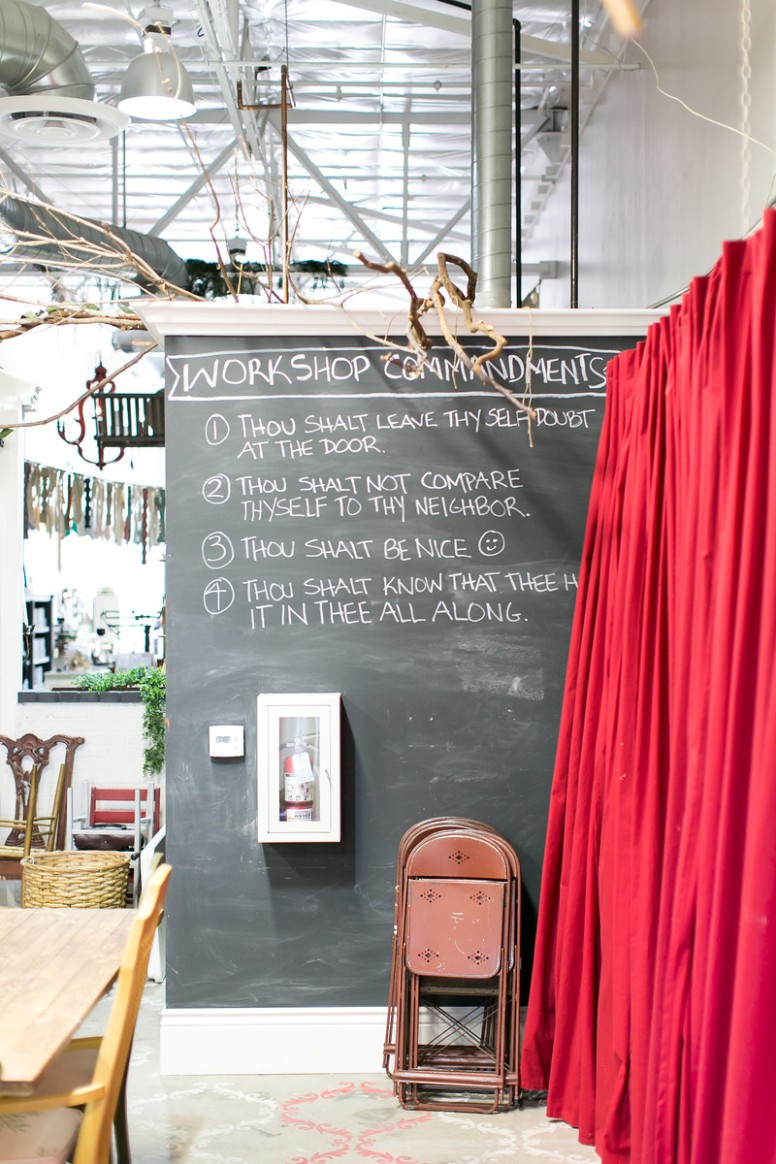 WORKSHOP COMMANDMENTS
① THOU SHALT LEAVE THY SELF DOUBT
AT THE DOOR.
② THOU SHALT NOT COMPARE
THYSELF TO THY NEIGHBOR.
③ THOU SHALT BE NICE ☺
④ THOU SHALT KNOW THAT THEE H
IT IN THEE ALL ALONG.